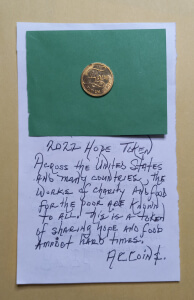 2022 HOPE TOKEN
ACROSS THE UNITED STATES
AND MANY COUNTRIES, THE
WORKS OF CHARITY AND FOOD
FOR THE POOR ARE KNOWN
TO ALL. THIS IS A TOKEN
OF SHARING HOPE AND FOOD
AMIDST HARD TIMES.